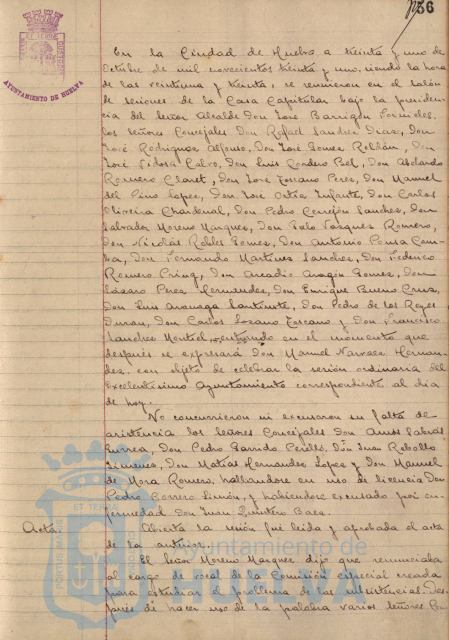 136
AYUNTAMIENTO DE HUELVA
En la Ciudad de Huelva a treinta y uno de
Octubre de mil novecientos treinta y uno, siendo la hora
de las veintiuna y treinta, se reunieron en el salón
de sesiones de la Casa Capitular bajo la presiden-
cia del Señor Alcalde Don José Barrigón Fornieles.
los Señores Concejales Don Rafael Sanchez Diaz, Don
José Rodriguez Alfonso, Don José Gomez Roldán, Don
José Tidosa Calvo, Don Luis Cordero Bel, Don Abelardo
Romero Claret, Don José Toscano Perez, Don Manuel
del Pino Lopez, Don José Ortiz Infante, Don Carlos
Oliveira Chardenal, Don Pedro Cerrejón Sanchez, Don
Salvador Moreno Marquez, Don Galo Vazquez Romero,
Don Nicolás Robles Gomez, Don Antonio Ponsa Cam-
ba, Don Fernando Martinez Sanchez, Don Federico
Romero Don Arcadio Aragón Gomez, Don
Lázaro Perez Hernandez, Don Enrique Bueno Cruz,
Don Luis Don Pedro de los Reyes
Duran, Don Carlos Lozano Toscano y Don Francisco
Sanchez Montiel, entrando en el momento que
despues se expresará Don Manuel Narvaez Hernan-
dez. con objeto de celebrar la sesión ordinaria del
Excelentísimo Ayuntamiento correspondiente al dia
de hoy.
No concurrieron ni excusaron su falta de
asistencia los señores Concejales Don Amós Sabrás
Gurrea, Don Pedro Garrido Perelló, Don Juan Rebollo
Jimenez, Don Matías Hernandez Lopez y Don Manuel
de Mora Romero, hallandose en uso de licencia Don
Pedro Borrero Limón, y habiendose excusado por en-
fermedad Don Juan Quintero Baez.
Acta. Abierta la sesión fué leida y aprobada el acta
de la anterior.
El Señor Moreno Marquez dijo que renunciaba
al cargo de vocal de la Comisión especial creada
para estudiar el problema de las subsistencias. Des-
pués de hacer uso de la palabra varios señores Con-
Ayuntamiento de
HUELVA